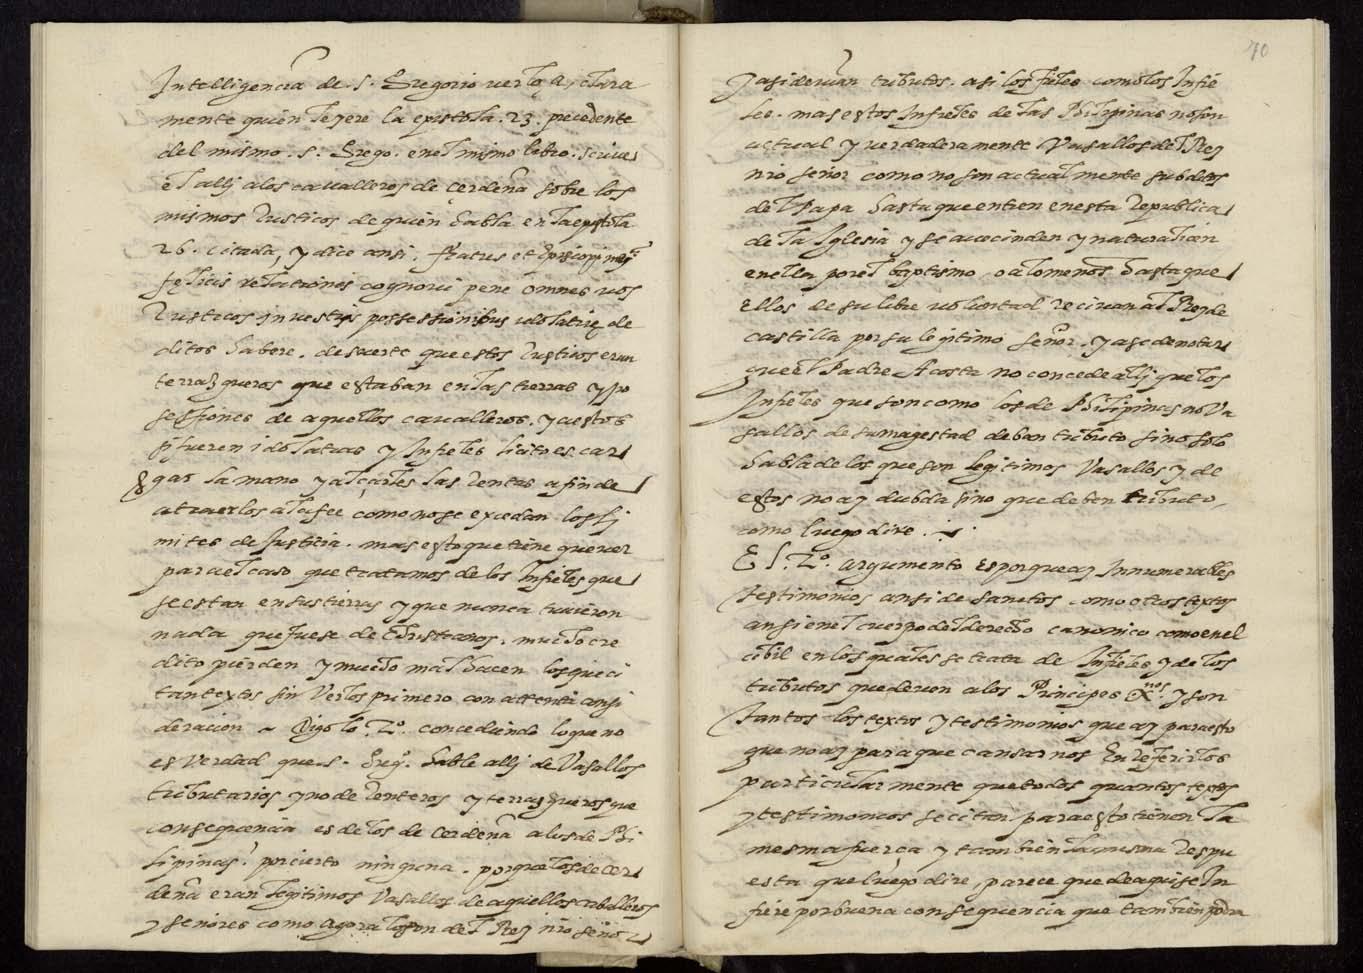 Intelligencia de. S. Gregorio verlo a, clara
mente quien leyere la epistola. 23. precedente
del mismo. S. Grego. en el mismo libro. scrive
el alli a los cavalleros de cerdeña sobre los
mismos Rusticos de quien habla en la epistola
26. citada, y dice ansi. fratris et Episcopi mei
felicis relationis cognovi pene omnes vos
Rusticos in vestris possessionibus idolatrię de
ditos habere. de suerte que estos Rusticos eran
terrazgueros que estaban en las tierras y po
sessiones de aquellos cavalleros. y a estos
si fueren idolatras y Infieles licito es car
gar la mano y alçarles las Rentas a fin de
atraerlos a la fee como no se excedan los li
mites de Justicia. mas esto que tiene que ver
para el caso que tratamos de los Infieles que
se estan en sus tierras y que nunca tuvieron
nada que fuese de christianos. mucho cre
dito pierden y mucho mal hacen los que ci
tan textos sin verlos primero con attenta consi
deracion ~ Digo lo. 2º. concediendo lo que no
es verdad que. S. Greg. hable alli de Vasallos
tributarios y no de Renteros y terrazgueros que
consequencia es de los de Cerdeña a los de Phi
lipinas? por cierto ninguna. porque los de cer
deña eran legitimos Vasallos de aquellos caballeros
y señores como agora lo son del Rey nro señor
70
y asi devian tributos. asi los fieles como los Infie
les. mas estos Infieles de las Philipinas no son
actual y verdaderamente Vasallos del Rey
nro señor como no son actualmente subditos
del Papa hasta que entren en esta Republica
de la Iglesia y se avecinden y naturalicen
en ella por el baptismo, o a lo menos hasta que
ellos de su libre voluntad recivan al Rey de
castilla por su legitimo señor. y a se de notar
que el Padre Acosta no concede alli que los
Infieles que son como los de Philipinas no Va
sallos de su magestad deban tributo sino solo
habla de los que son legitimos Vasallos y de
estos no ay dubda sino que deben tributo,
como luego dire.
El. 2º. argumento es porque ay Innumerables
testimonios ansi de sanctos como otros textos
ansi en el cuerpo del derecho canonico como en el
cibil en los quales se trata de Infieles y de los
tributos que deven a los Principes Xnos. y son
tantos los textos y testimonios que ay para esto
que no ay para que cansarnos En referirlos
particularmente que todos quantos textos
y testimonios se citan para esto tienen la
mesma fuerça y tambien la misma Respu
esta que luego dire, parece que de aqui se In
fiere por buena consequencia que tambien podra